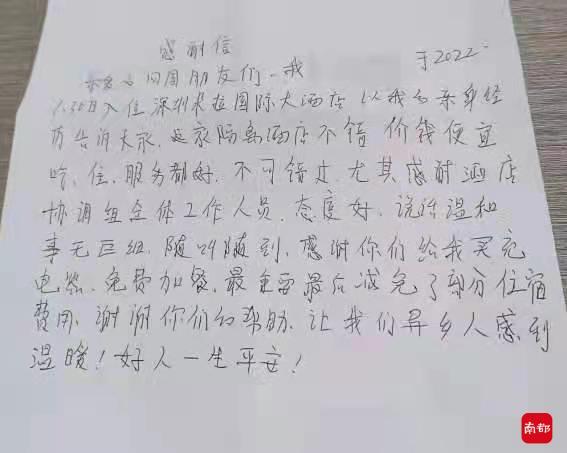 感谢信
亲爱的回国朋友们.我于2022.
1.30日入住深圳米拉国际大酒店 以我的亲身经
历告诉大家.这家隔离酒店不错 价钱便宜
吃、住、服务都好.不可错过.尤其感谢酒店
协调组全体工作人员.态度好、说话温和
事无巨细.随叫随到.感谢你们给我买充
电器.免费加餐.最重要最后减免了部分住宿
费用.谢谢你们的帮助.让我们异乡人感到
温暖！好人一生平安！
南都